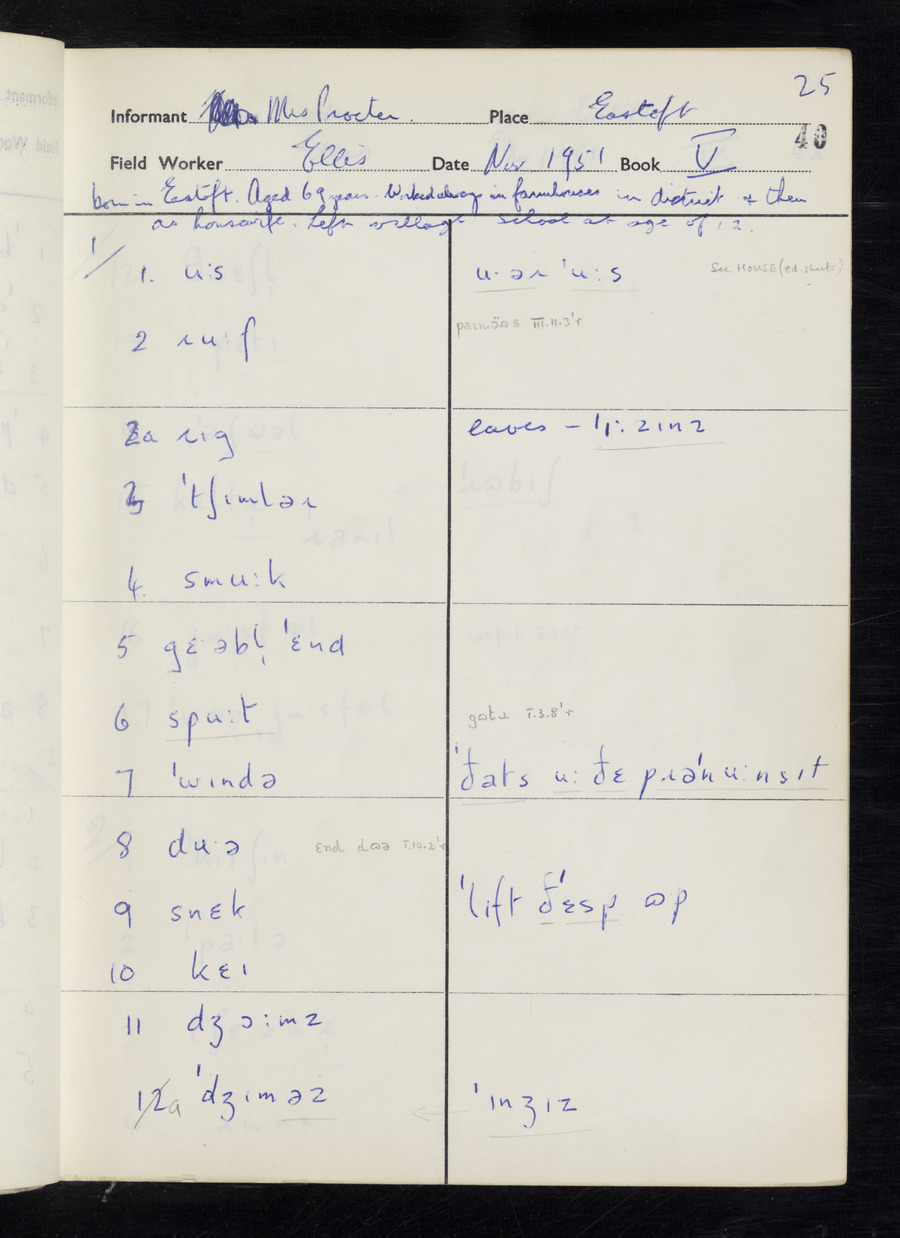 25
Informant Mrs Procter. Place Eastoft
40
Field Worker Ellis Date Nov 1951 Book V
born in Eastoft. Aged 69 years. Worked always in farmhouses in district & then
as housewife. Left village school at age of 12.
1/
1. uːs u·əɹ ˈuːs See HOUSE (ed. sheets)
2 ɹuːf
III.11.3'r
2a ɹɪg eaves – ˈɪːzɪnz
3 ˈtʃɪmləɹ
4. smuːk
5 gɛəbl̩ ˈɛnd
6 spuːt I.3.8'r
7 ˈwɪndə ˈðats uː ðɛ pɹəˈnuːnsɪt
8 duə End dɷə I.10.2'r
9 snɛk ˈlɪft ð ˈɛsp ɷp
10 kɛɪ
11 dʒɔːmz
12a ˈdʒɪməz ˈɪnʒɪz